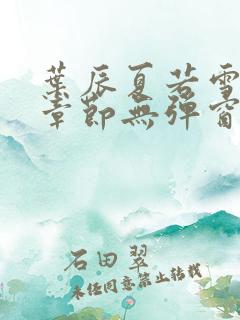 葉辰夏若雪
章節無彈窗
石田 翠
未经同意禁止转载